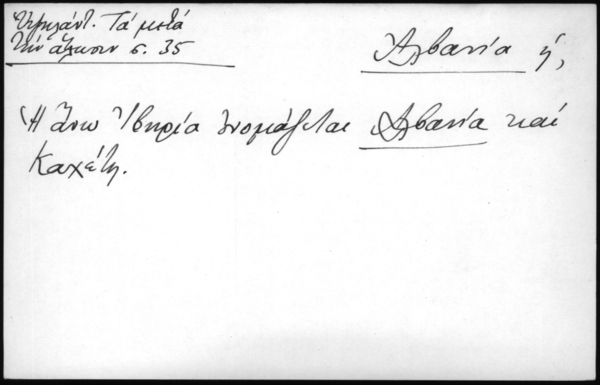 Ὑψηλάντ. Τά μετά
τήν ἅλωσιν σ. 35
Ἀλβανία ἡ,
Ἡ ἄνω Ἰβηρία ὀνομάζεται Ἀλβανία καί
Καχέτη.